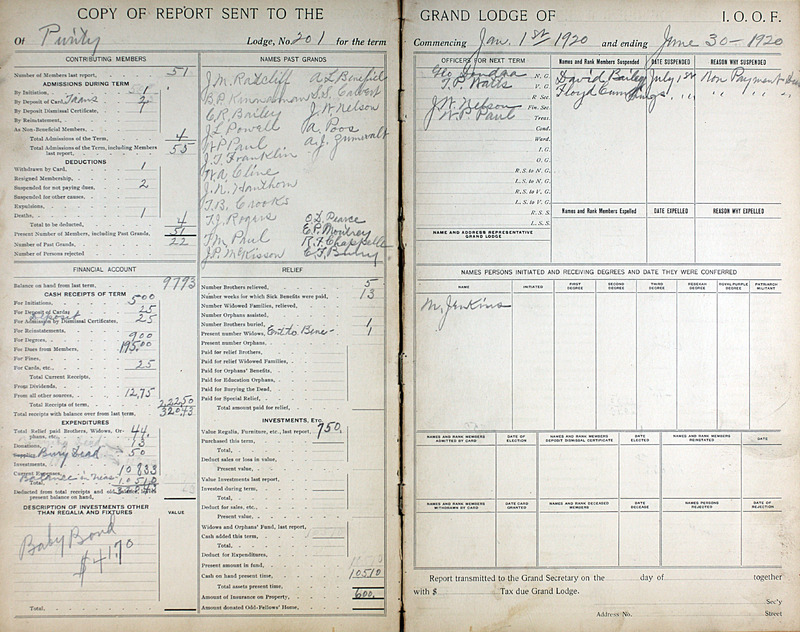 COPY OF REPORT SENT TO THE
Of Purity Lodge, No. 201 for the term
CONTRIBUTING MEMBERS
Number of Members last report, 51
ADMISSIONS DURING TERM
By Initiation, 1
By Deposit of Card, Trans 2
By Deposit Dismissal Certificate,
By Reinstatement,
As Non-Beneficial Members,
Total Admissions of the Term, 4
Total Admissions of the Term, including Members last report, 55
DEDUCTIONS
Withdrawn by Card, 1
Resigned Membership,
Suspended for not paying dues, 2
Suspended for other causes,
Expulsions,
Deaths, 1
Total to be deducted, 4
Present Number of Members, including Past Grands, 51
Number of Past Grands, 22
Number of Persons rejected
NAMES PAST GRANDS
J.M. Ratcliff A.L. Benefiel
B.P. Kinnaman S.S. Calvert
E.R. Bailey J.W. Nelson
J.L. Powell A. Poos
W.P. Paul A.J. Zumwalt
J.T. Franklin
W.A. Cline
J.N. Hawthorn
T.B. Crooks
T.J. Rogers O.L. Pearce
T.M. Paul E.P. Montrey
J.P. McKisson R.F. Chappelle
E.T. Bailey
FINANCIAL ACCOUNT
Balance on hand from last term, 9793
CASH RECEIPTS OF TERM
For Initiations, 500
For Deposit of Cards, 25
Deposit
For Admission by Dismissal Certificates, 25
For Reinstatements,
For Degrees, 900
For Dues from Members, 195.00
For Fines,
For Cards, etc., 25
Total Current Receipts,
From Dividends,
From all other sources, 12.75
Total Receipts of term, 222.50
Total receipts with balance over from last term, 32043
EXPENDITURES
Total Relief paid Brothers, Widows, Orphans, etc., 44.
Donations, 15
Supplies, Bury Dead 50
Investments,
Current Expenses, 10833
Balance in Treas
Total, 10510
Deducted from total receipts and old balance, leaves present balance on hand,
DESCRIPTION OF INVESTMENTS OTHER THAN REGALIA AND FIXTURES
VALUE
Baby Bond
$4170
Total,
RELIEF
Number Brothers relieved, 5
Number weeks for which Sick Benefits were paid, 13
Number Widowed Families, relieved,
Number Orphans assisted,
Number Brothers buried, 1
Present number Widows, Ent to Bene- 1
Present number Orphans,
Paid for relief Brothers,
Paid for relief Widowed Families,
Paid for Orphans' Benefits,
Paid for Education Orphans,
Paid for Burying the Dead,
Paid for Special Relief,
Total amount paid for relief,
INVESTMENTS, Etc.
Value Regalia, Furniture, etc., last report, 750.
Purchased this term,
Total,
Deduct sales or loss in value,
Present value,
Value Investments last report,
Invested during term,
Total,
Deduct for sales, etc.,
Present value,
Widows and Orphans' Fund, last report,
Cash added this term,
Total,
Deduct for Expenditures,
Present amount in fund,
Cash on hand present time, 10510
Total assets present time,
Amount of Insurance on Property, 600.
Amount donated Odd-Fellows' Home,
GRAND LODGE OF I. O. O. F.
Commencing Jan. 1st 1920 and ending June 30-1920
OFFICERS FOR NEXT TERM
N. G.
T.P. Watts V. G.
R. Sec.
J.W. Nelson Fin. Sec.
W.P. Paul Treas.
Cond.
Ward.
I. G.
O. G.
R. S. to N. G.
L. S. to N. G.
R. S. to V. G.
L. S. to V. G.
R. S. S.
L. S. S.
NAME AND ADDRESS REPRESENTATIVE GRAND LODGE
Names and Rank Members Suspended DATE SUSPENDED REASON WHY SUSPENDED
David Bailey July 1st Non Payment Dues
Floyd Cummings " " " "
Names and Rank Members Expelled DATE EXPELLED REASON WHY EXPELLED
NAMES PERSONS INITIATED AND RECEIVING DEGREES AND DATE THEY WERE CONFERRED
NAME INITIATED FIRST DEGREE SECOND DEGREE THIRD DEGREE REBEKAH DEGREE ROYAL PURPLE DEGREE PATRIARCH MILITANT
M. Jenkins
NAMES AND RANK MEMBERS ADMITTED BY CARD DATE OF ELECTION NAMES AND RANK MEMBERS DEPOSIT DISMISSAL CERTIFICATE DATE ELECTED NAMES AND RANK MEMBERS REINSTATED DATE
NAMES AND RANK MEMBERS WITHDRAWN BY CARD DATE CARD GRANTED NAMES AND RANK DECEASED MEMBERS DATE DECEASE NAMES PERSONS REJECTED DATE OF REJECTION
Report transmitted to the Grand Secretary on the day of together
with $ Tax due Grand Lodge.
Sec'y
Address No. Street